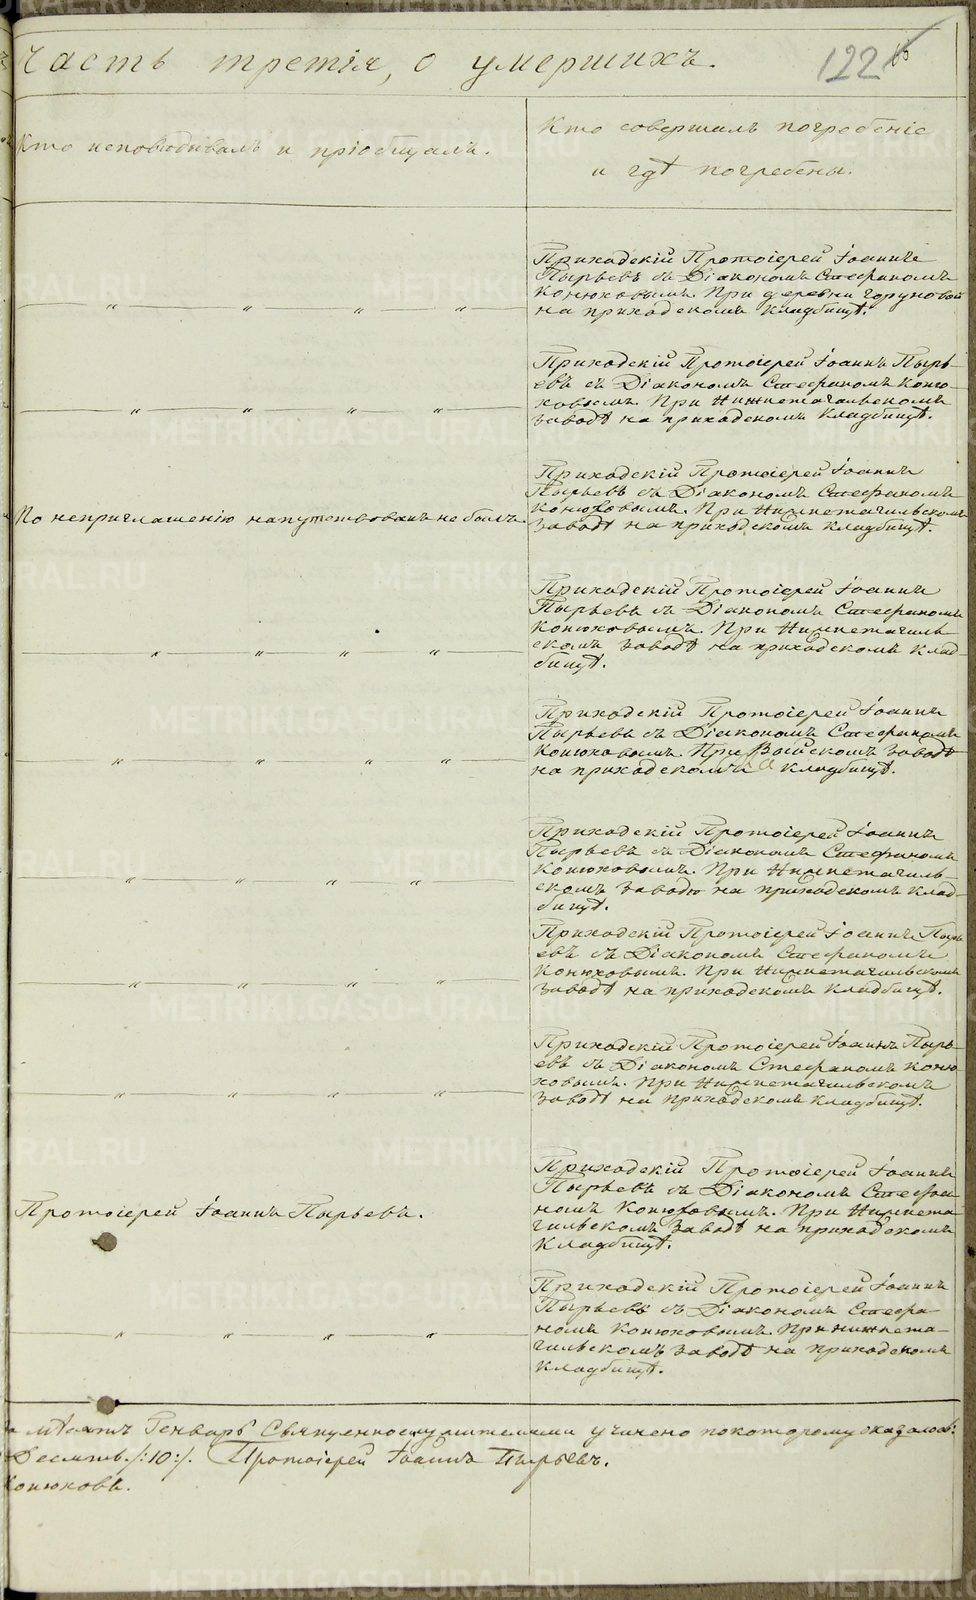 Часть третія, о умершихъ.
122
Кто исповѣдывалъ и пріобщалъ.
Кто совершалъ погребеніе
и гдѣ погребены.
Приходскій Протоіерей Іоаннъ
Пырьевъ съ Діакономъ Стефаномъ
Конюховымъ. При деревни Горуновой
на приходскомъ кладбищѣ.
Приходскій Протоіерей Іоаннъ Пырь-
евъ съ Діакономъ Стефаномъ Коню-
ховымъ. При Нижнетагильскомъ
заводѣ на приходскомъ кладбищѣ.
Приходскій Протоіерей Іоаннъ
Пырьевъ съ Діакономъ Стефаномъ
Конюховымъ. При Нижнетагильскомъ
заводѣ на приходскомъ кладбищѣ.
По неприглашенію напутствованъ не былъ.
Приходскій Протоіерей Іоаннъ
Пырьевъ съ Діакономъ Стефаномъ
Конюховымъ. При Нижнетагиль-
скомъ заводѣ на приходскомъ клад-
бищѣ.
Приходскій Протоіерей Іоаннъ
Пырьевъ съ Діакономъ Стефаномъ
Конюховымъ. При Выйскомъ заводѣ
на приходскомъ кладбищѣ.
Приходскій Протоіерей Іоаннъ
Пырьевъ съ Діакономъ Стефаномъ
Конюховымъ. При Нижнетагиль-
скомъ заводѣ на приходскомъ клад-
бищѣ.
Приходскій Протоіерей Іоаннъ Пырь
евъ съ Діакономъ Стефаномъ
Конюховымъ. При Нижнетагильскомъ
заводѣ на приходскомъ кладбищѣ.
Приходскій Протоіерей Іоаннъ Пырь-
евъ съ Діакономъ Стефаномъ Коню
ховымъ. При Нижнетагильскомъ
заводѣ на приходскомъ кладбищѣ.
Протоіерей Іоаннъ Пырьевъ.
Приходскій Протоіерей Іоаннъ
Пырьевъ съ Діакономъ Стефа-
номъ Конюховымъ. При Нижнета-
гильскомъ заводѣ на приходскомъ
кладбищѣ.
Приходскій Протоіерей Іоаннъ
Пырьевъ съ Діакономъ Стефа-
номъ Конюховымъ. При Нижнета-
гильскомъ заводѣ на приходскомъ
кладбищѣ.
мѣсяцъ Генварь Священнослужителями учинено по которому оказалось:
Десять /:10:/. Протоіерей Іоаннъ Пырьевъ.
Конюховъ.
METRIKI.GASO-URAL.RU